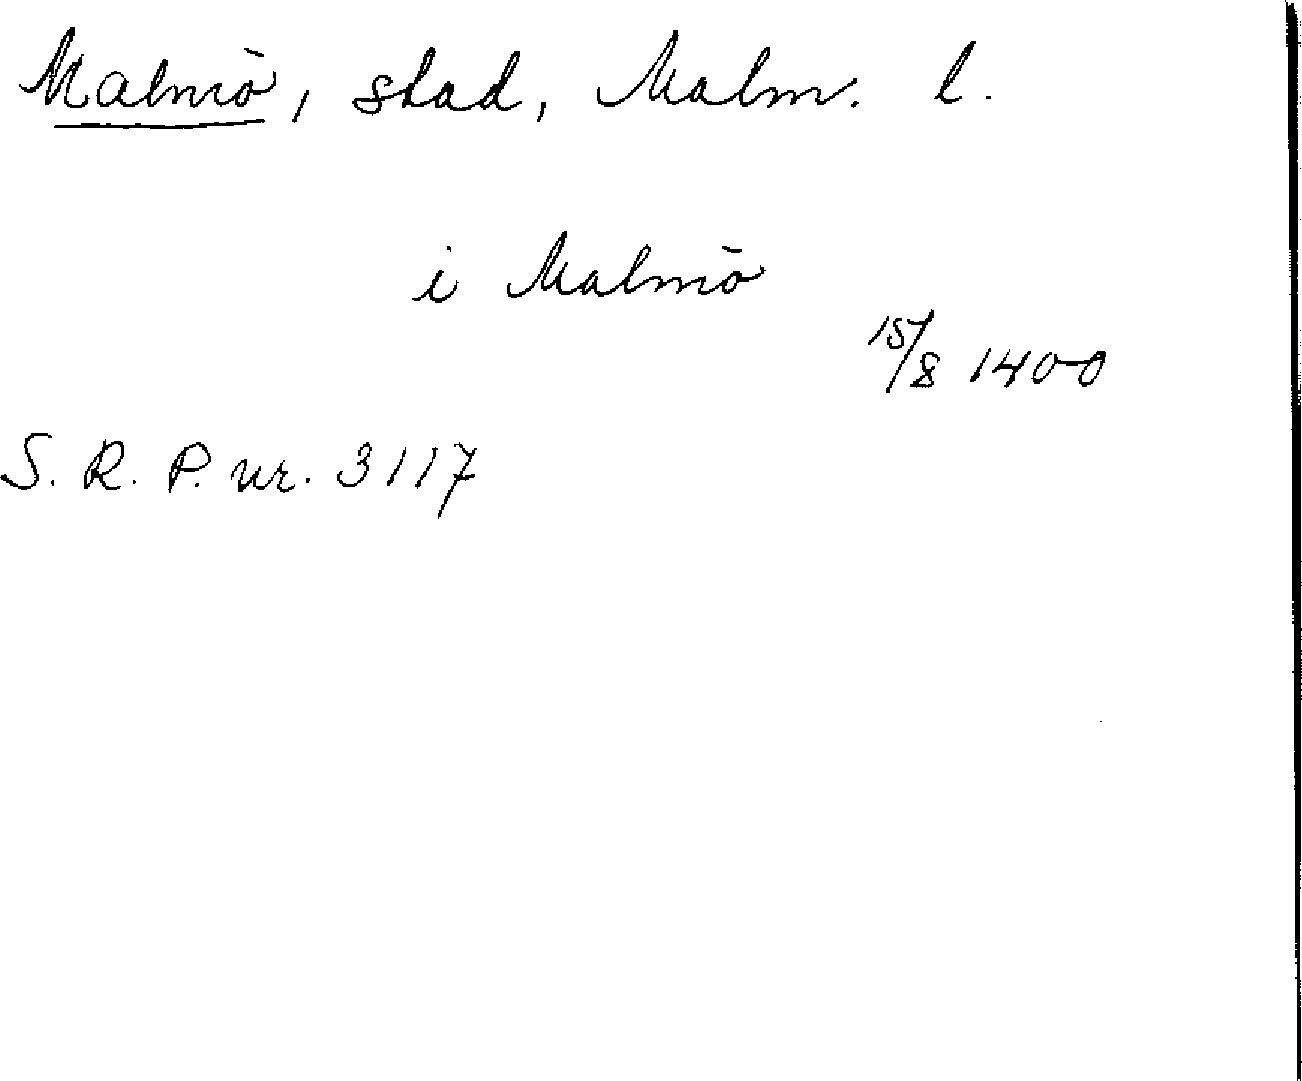 Malmö, stad, Malm. l.
i Malmö
15/8 1400
S. R. P. nr. 3117